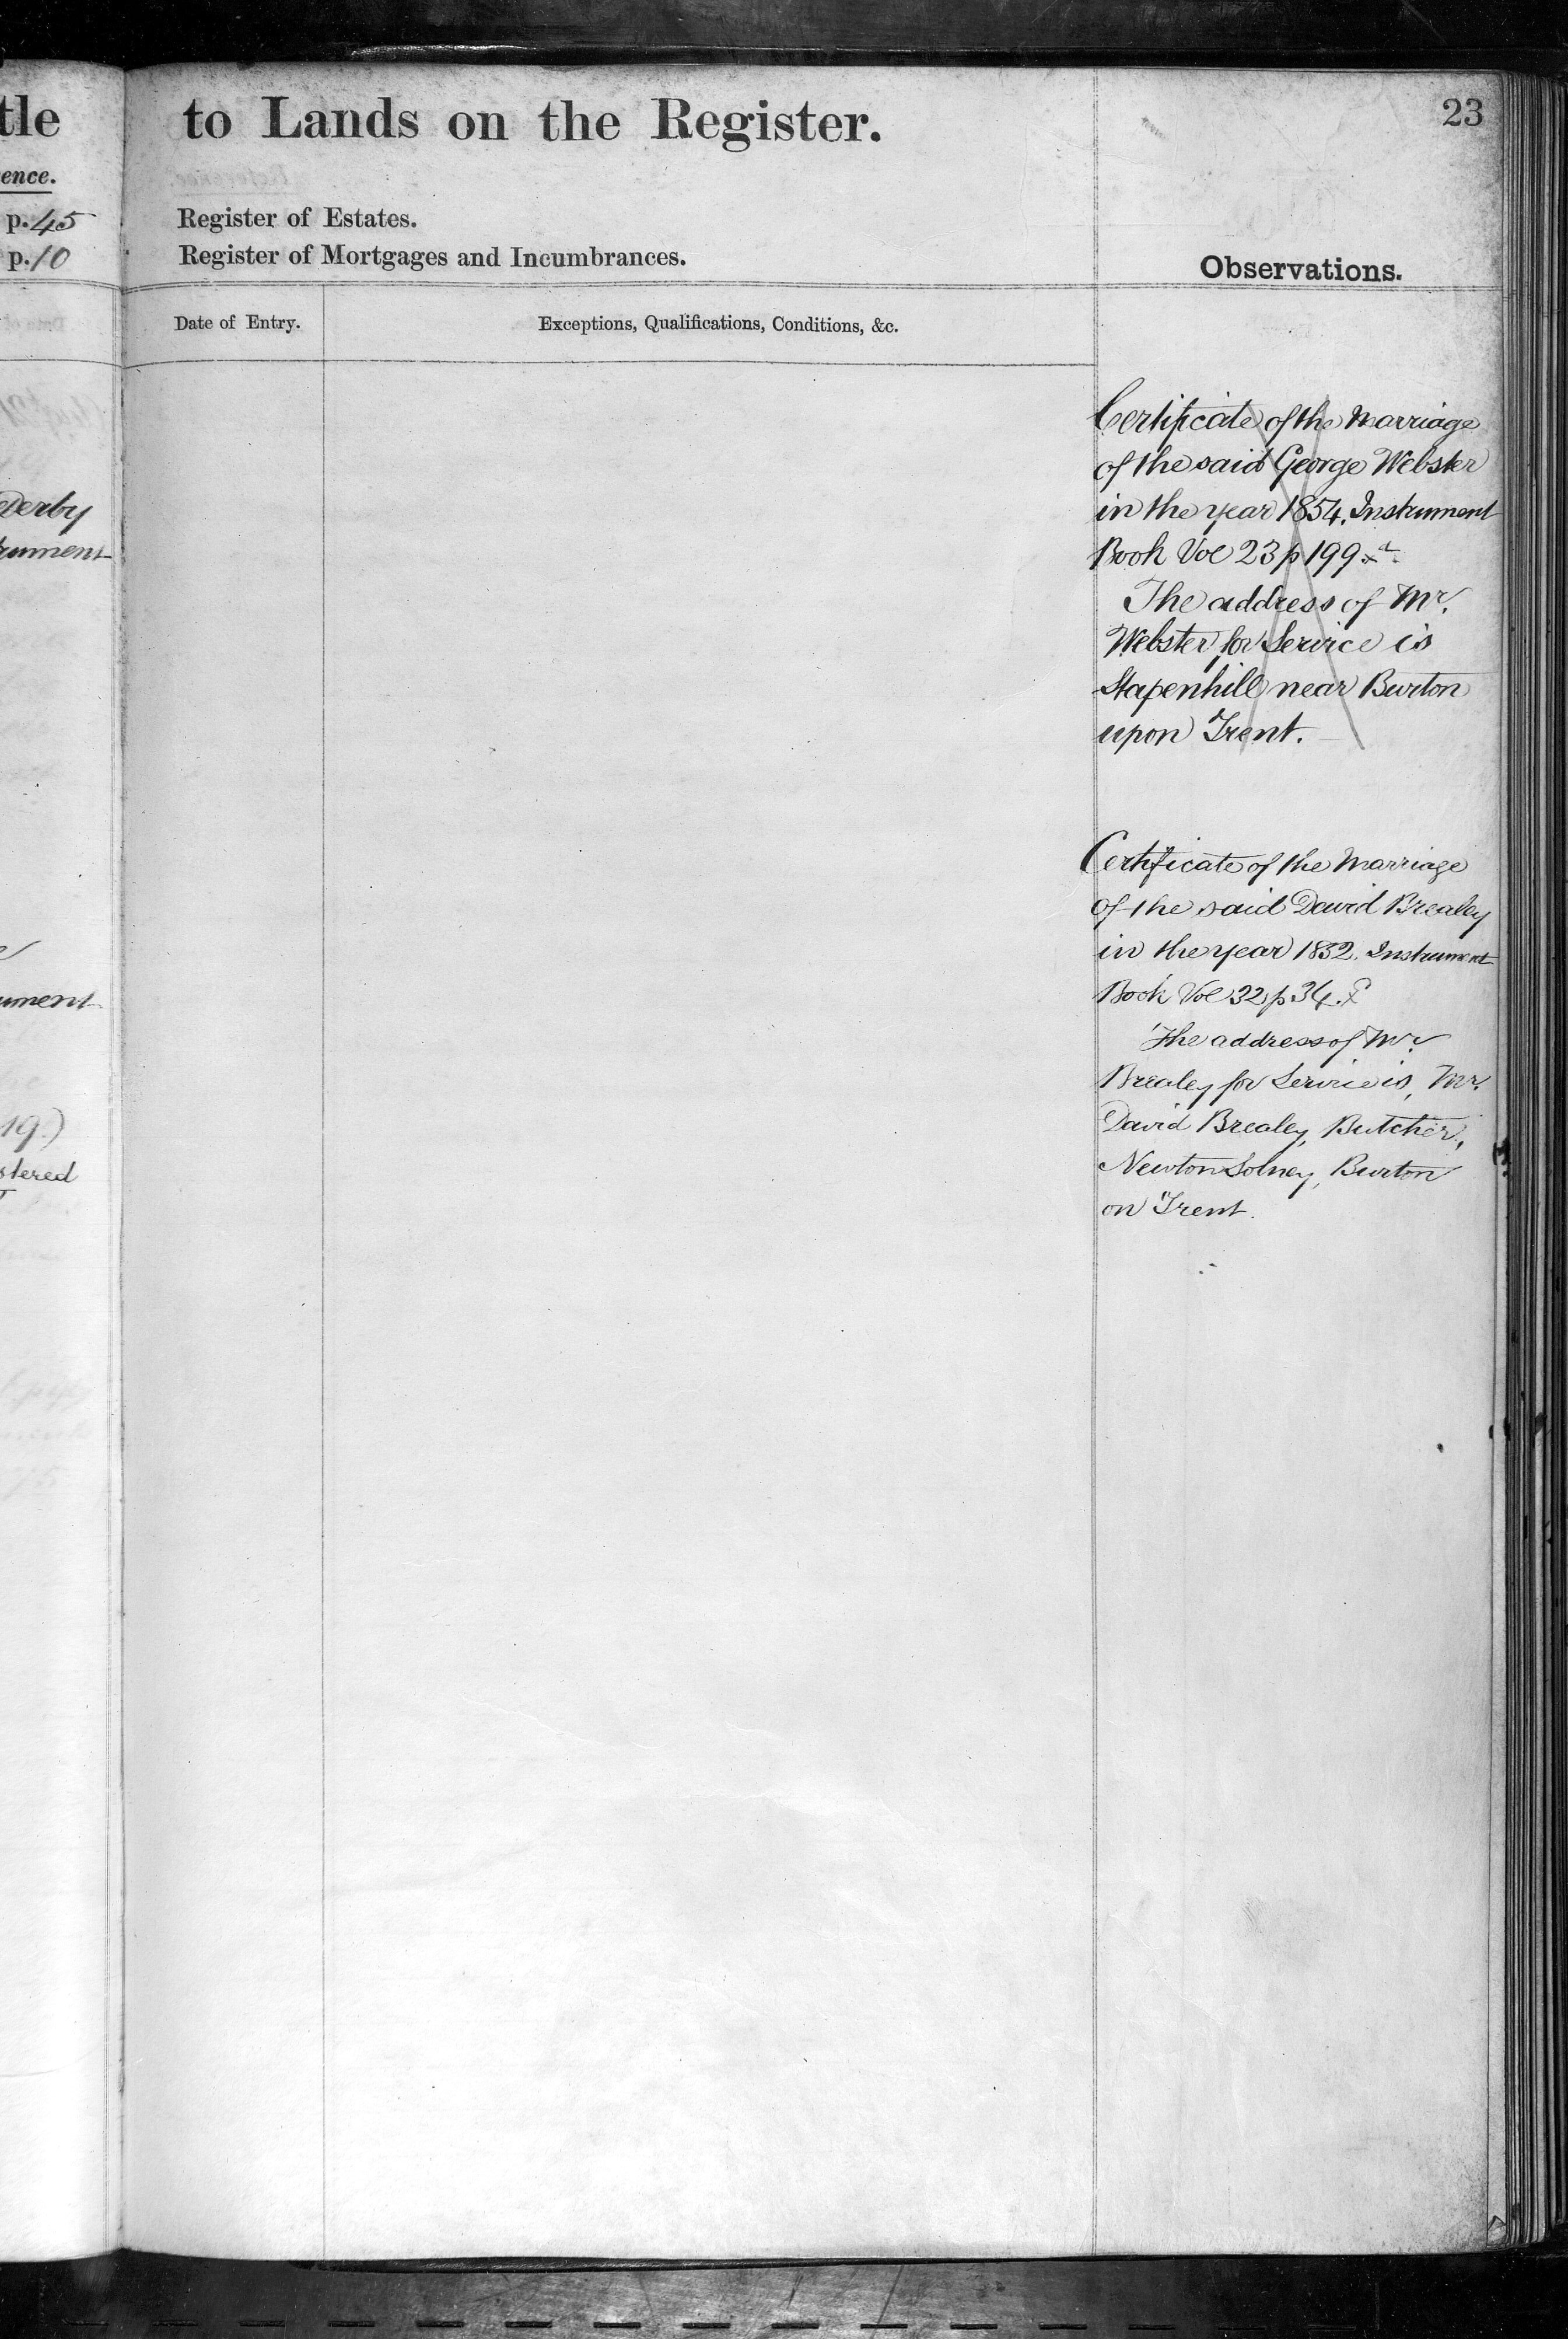 tle
ence.
p. 45
p. 10
Derby
rument
ument
19.)
stered
to Lands on the Register.
23
Register of Estates.
Register of Mortgages and Incumbrances.
Observations.
Date of Entry.
Exceptions, Qualifications, Conditions, &c.
Certificate of the Marriage
of the said George Webster
in the year 1854. Instrument
Book Vol 23 p 199
The address of Mr.
Webster for Service is
Stapenhill near Burton
upon Trent.
Certificate of the Marriage
of the said David Brealey
in the year 1832. Instrument
Book Vol 32 p 34.
The address of Mr
Brealey for Service is, Mr.
David Brealey, Butcher,
Newton Solney, Burton
on Trent.